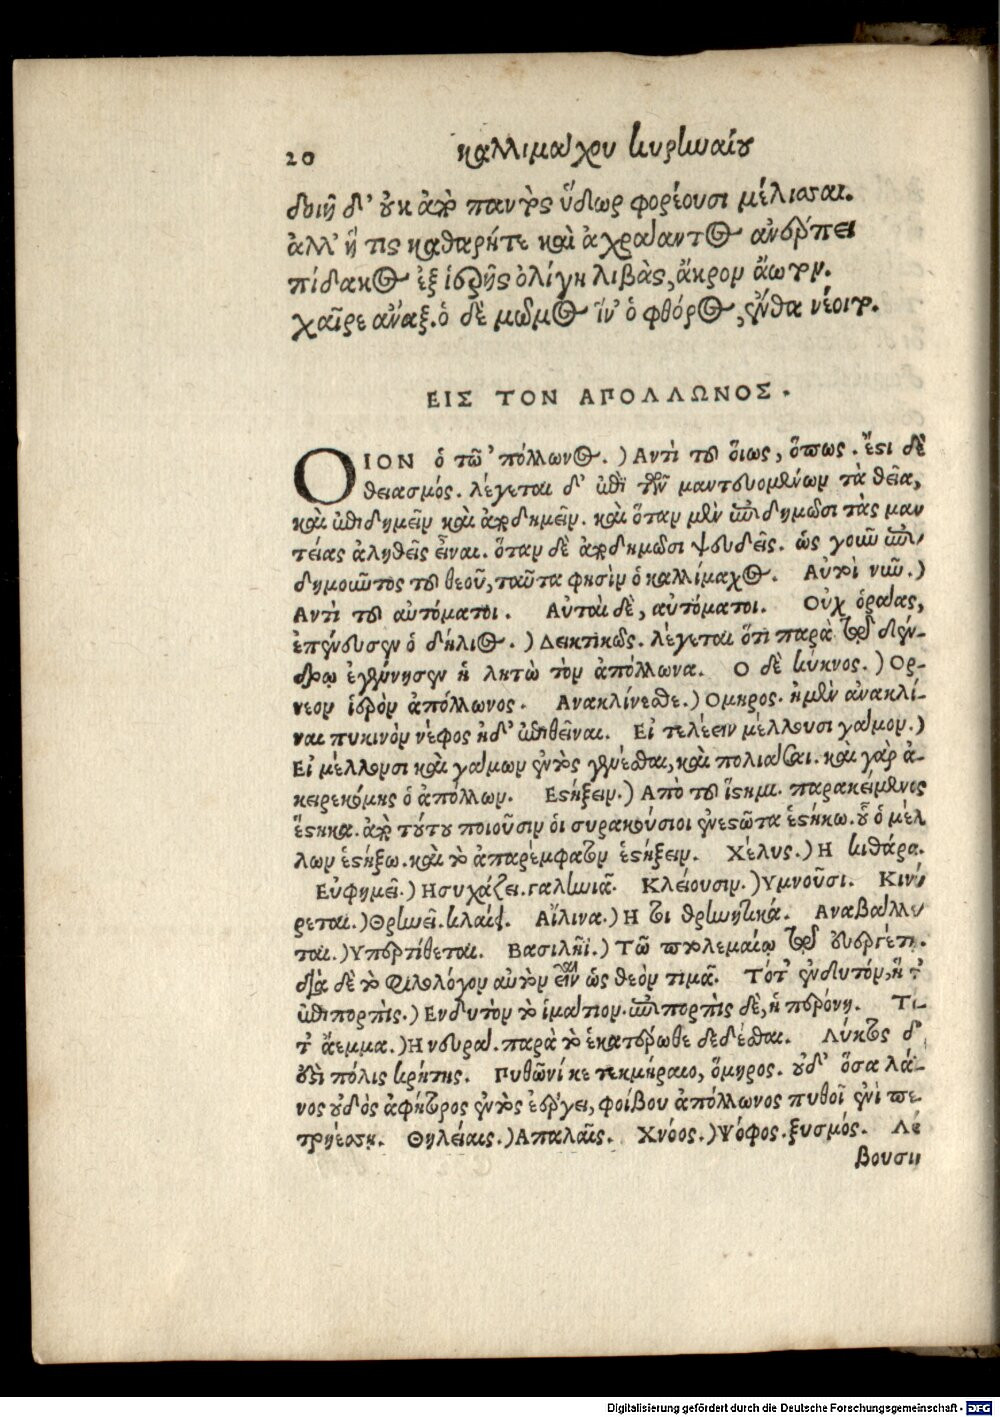 20 καλλιμάχου κυρηναίου
δηοῖ δ' οὐκ ἀπὸ παντὸς ὕδωρ φορέουσι μέλισσαι.
ἀλλ' ἥ τις καθαρήτε καὶ ἀχράαντος ἀνέρπει
πίδακος ἐξ ἱερῆς ὀλίγη λιβὰς, ἄκρον ἄωτον.
χαῖρε ἄναξ. ὁ δὲ μῶμος ἵν' ὁ φθόρος, ἔνθα νέοιτο.
ΕΙΣ ΤΟΝ ΑΠΟΛΛΩΝΟΣ.
ΟΙΟΝ ὁ τῶ 'πόλλωνος.) Αντὶ τοῦ οἵως, ὅπως. ἔστι δὲ
θειασμός. λέγεται δ' ἐπὶ τῶν μαντευομένων τὰ θεῖα,
καὶ ἐπιδημεῖν καὶ ἀποδημεῖν. καὶ ὅταν μὲν ἐπιδημῶσι τὰς μαν
τείας ἀληθεῖς εἶναι. ὅταν δὲ ἀποδημῶσι ψευδεῖς. ὡς γοῦν ἐπι
δημοῦντος τοῦ θεοῦ, ταῦτα φησὶν ὁ καλλίμαχος. Αὐτοὶ νῦν.)
Αντὶ τοῦ αὐτόματοι. Αὐταὶ δὲ, αὐτόματοι. Οὐχ ὁράας,
ἐπένευσεν ὁ δήλιος.) Δεικτικῶς. λέγεται ὅτι παρὰ τῷ δέν-
δρῳ ἐγέννησεν ἡ λητὼ τὸν ἀπόλλωνα. Ο δὲ κύκνος.) Ορ-
νεον ἱερὸν ἀπόλλωνος. Ανακλίνεσθε.) Ομηρος. ἠμὲν ἀνακλί-
ναι πυκινὸν νέφος ἠδ' ἐπιθεῖναι. Εἰ τελέειν μέλλουσι γάμον.)
Εἰ μέλλουσι καὶ γάμων ἐντὸς γενέσθαι, καὶ πολιᾶσαι. καὶ γὰρ ἀ-
κειρεκόμης ὁ ἀπόλλων. Εστήξειν.) Απὸ τοῦ ἵστημι. παρακείμενος
ἕστηκα. ἀπὸ τούτου ποιοῦσιν οἱ συρακούσιοι ἐνεστῶτα ἑστήκω. οὗ ὁ μέλ
λων ἑστήξω. καὶ τὸ ἀπαρέμφατον ἑστήξειν. Χέλυς.) Η κιθάρα.
Εὐφημεῖ.) Ησυχάζει. γαληνιᾷ. Κλείουσιν.) Υμνοῦσι. Κινύ
ρεται.) Θρηνεῖ. κλαίει. Αἴλινα.) Η τοι θρηνητικά. Αναβάλλε
ται.) Υπερτίθεται. Βασιλῆϊ.) Τῶ πτολεμαίῳ τῷ εὐεργέτῃ.
διὰ δὲ τὸ φιλολόγον αὐτὸν εἶναι ὡς θεὸν τιμᾷ. Τότ' ἐνδυτόν, ἥ τ'
ἐπιπορπὶς.) Ενδυτὸν τὸ ἱμάτιον. ἐπιπορπὶς δὲ, ἡ περόνη. Τό
τ' ἄεμμα.) Η νευρά. παρὰ τὸ ἑκατέρωθε δεδέσθαι. Λύκτος δ'
ἐστὶ πόλις κρήτης. Πυθῶνί κε τεκμήραιο, ὅμηρος. οὐδ' ὅσα λά-
νος οὐδὸς ἀφήτορος ἐντὸς ἐέργει, φοίβου ἀπόλλωνος πυθοῖ ἐνὶ πε-
τρηέσσῃ. Θηλείαις.) Απαλαῖς. Χνόος.) Ψόφος. ξυσμός. Λε
βουσιν
Digitalisierung gefördert durch die Deutsche Forschungsgemeinschaft - DFG